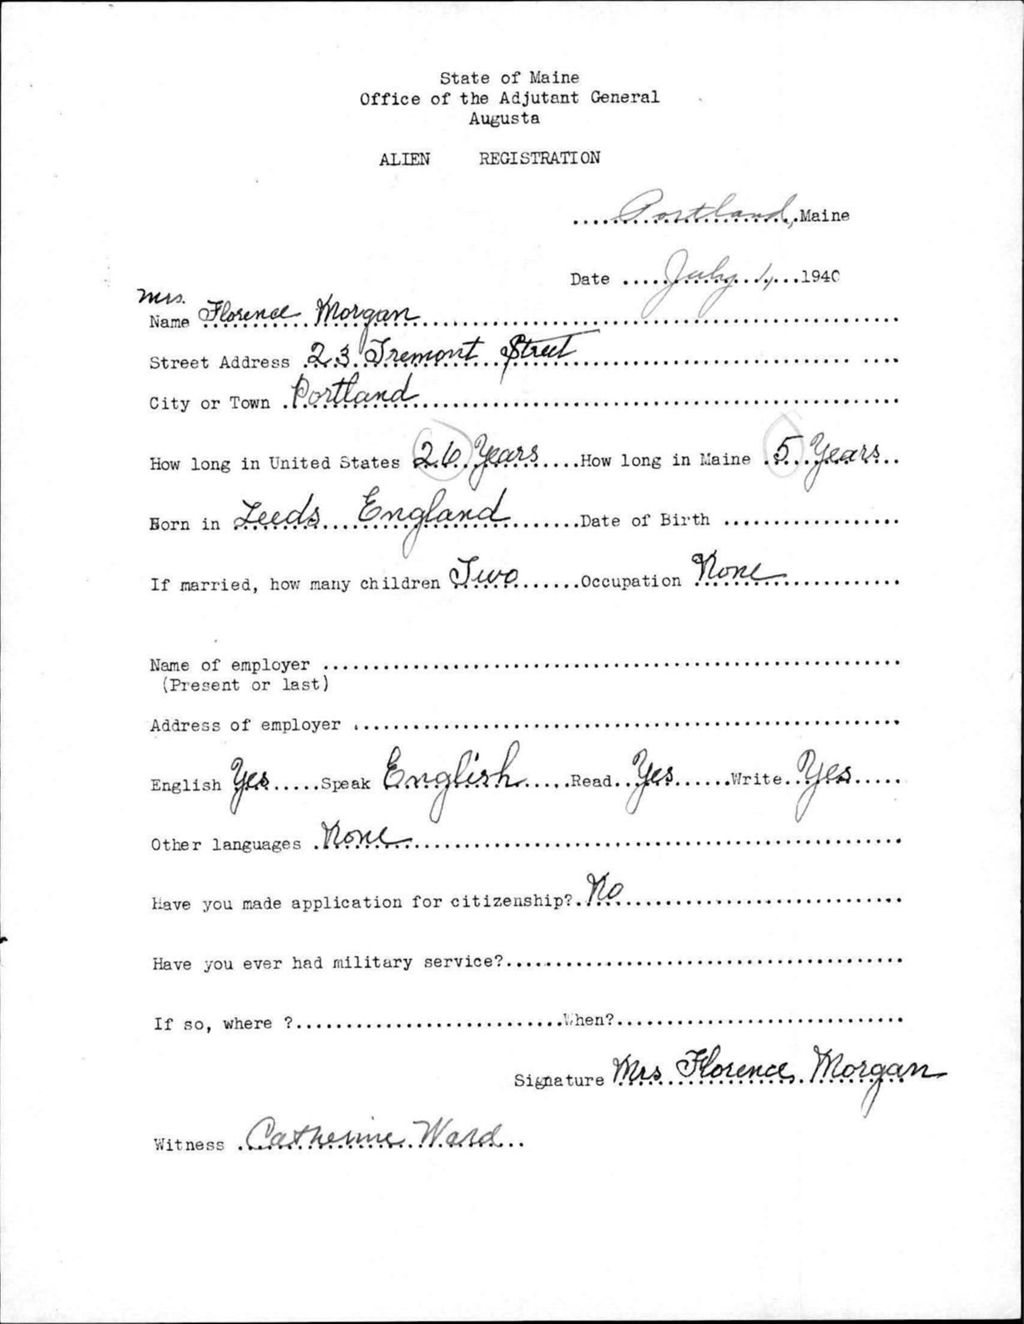 State of Maine
Office of the Adjutant General
Augusta
ALIEN REGISTRATION
Portland, Maine
Date July 1, 1940
Mrs.
Name Florence Morgan
Street Address 23 Tremont Street
City or Town Portland
How long in United States 26 Years How long in Maine 5 Years
Born in Leeds England Date of Birth
If married, how many children Two Occupation None
Name of employer
(Present or last)
Address of employer
English Yes Speak English Read Yes Write Yes
Other languages None
Have you made application for citizenship? No
Have you ever had military service?
If so, where ? When?
Signature Mrs Florence Morgan
Witness Catherine Ward